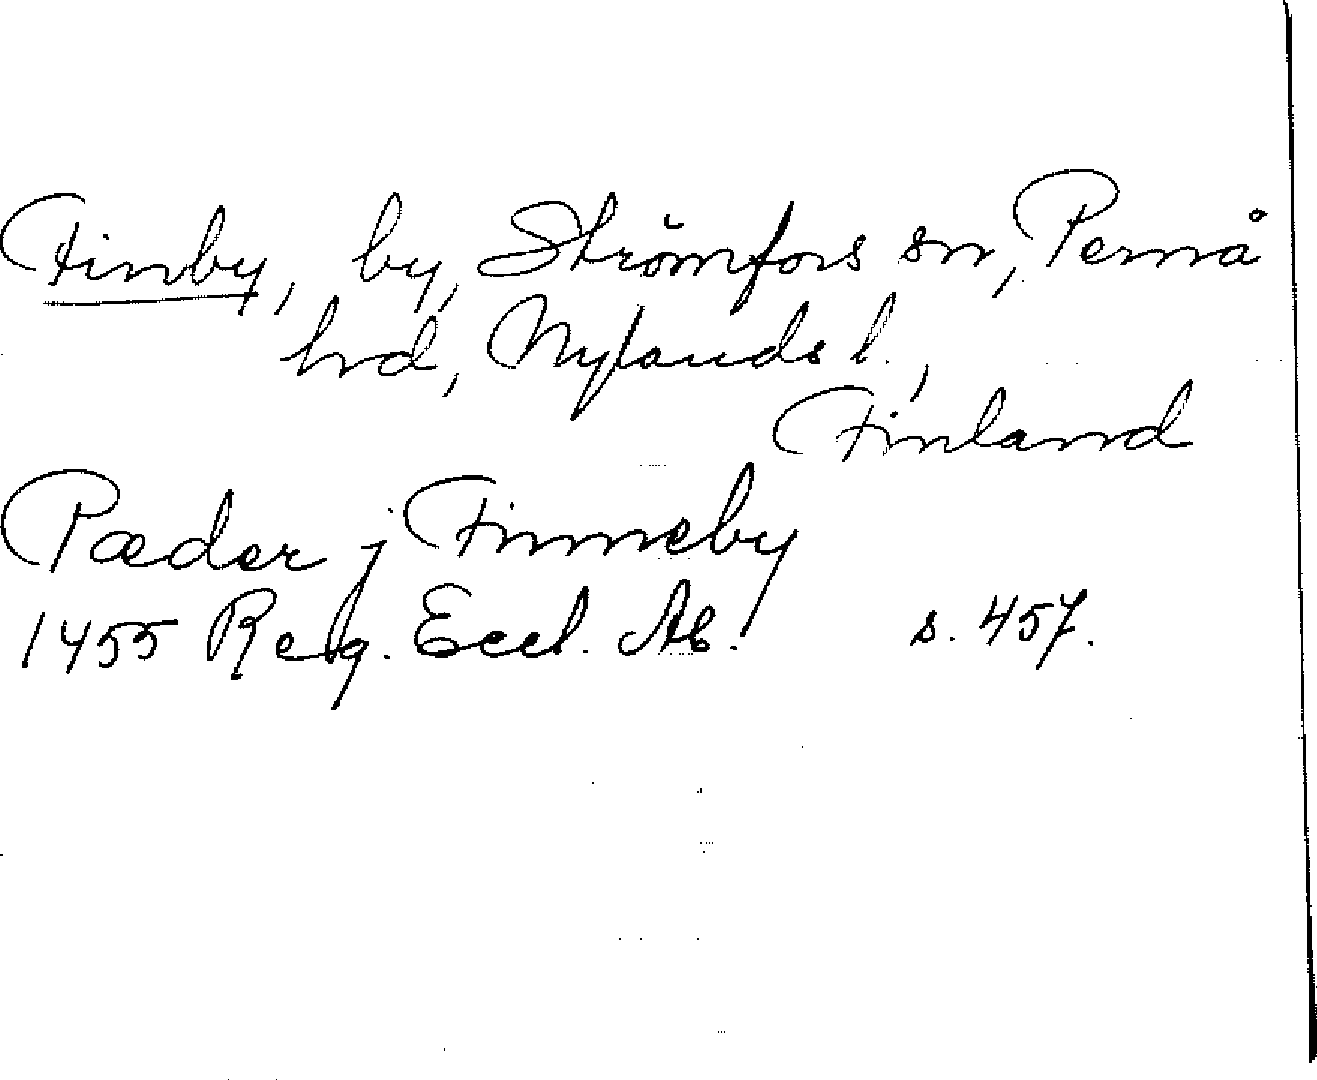 Finby, by, Strömfors sn, Pernå
hrd, Nylands l.,
Finland
Pæder j Finneby
1455 Reg. Eccl. Ab. s. 457.